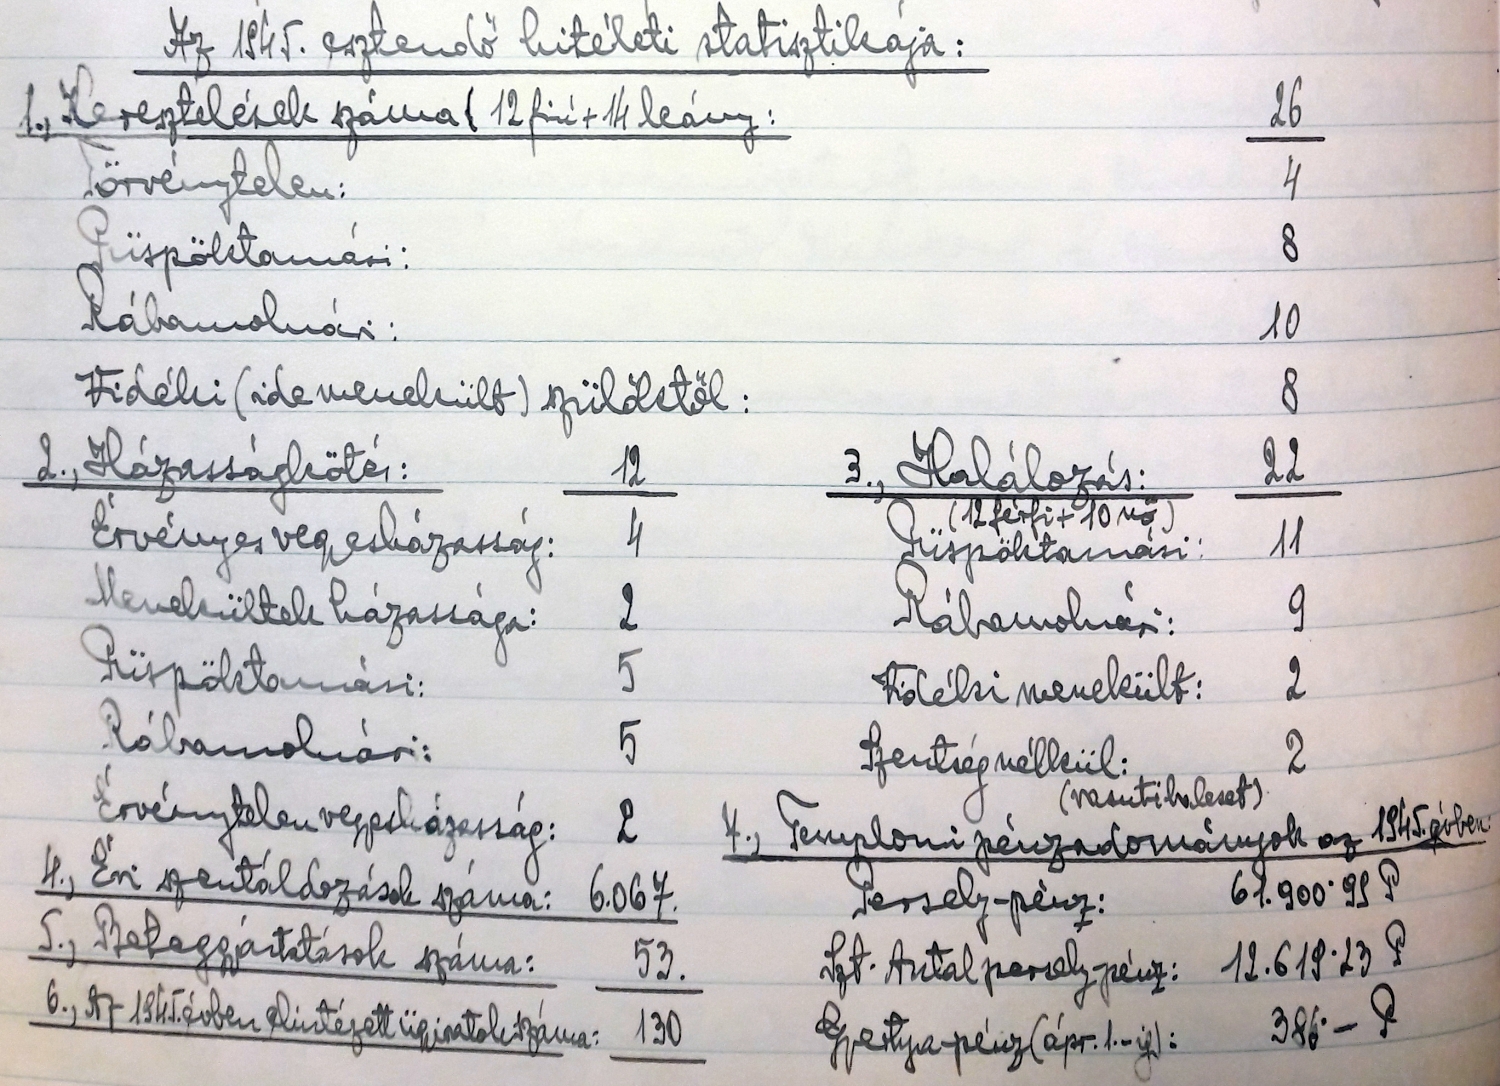 Az 1945. esztendő hitéleti statisztikája:
1., Keresztelések száma ( 12 fiú + 14 leány: 26
Törvénytelen: 4
Püspöktamási: 8
Rábamolnári: 10
Vidéki (ide menekült) szülőktől: 8
2., Házasságkötés: 12
Érvényes vegyesházasság: 4
Menekültek házassága: 2
Püspöktamási: 5
Rábamolnári: 5
Érvénytelen vegyesházasság: 2
4., Évi szentáldozások száma: 6.067.
5., Beteggyóntatások száma: 53.
6., Az 1945. évben elintézett ügyiratok száma: 130
3., Halálozás: 22
(12 férfi + 10 nő)
Püspöktamási: 11
Rábamolnári: 9
Vidéki menekült: 2
Szentség nélkül: 2
(vasuti baleset)
7., Templomi pénzadományok az 1945. évben:
Persely-pénz: 61.900·99 P
Szt. Antal persely-pénz: 12.619·23 P
Gyertya-pénz (ápr. 1.-ig): 386·— P